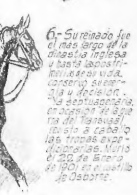 6.- Su reinado fue
el más largo de la
dinastía inglesa
y hasta las postri-
de su vida,
conservó su ener-
gía y decisión.
Ya septuagenaria,
en ocasión de la gue-
rra del Transvaal,
revistó a caballo
las tropas expe-
dicionarias. Murió
el 22 de Enero
de 1901 en el castillo
de Osborne.